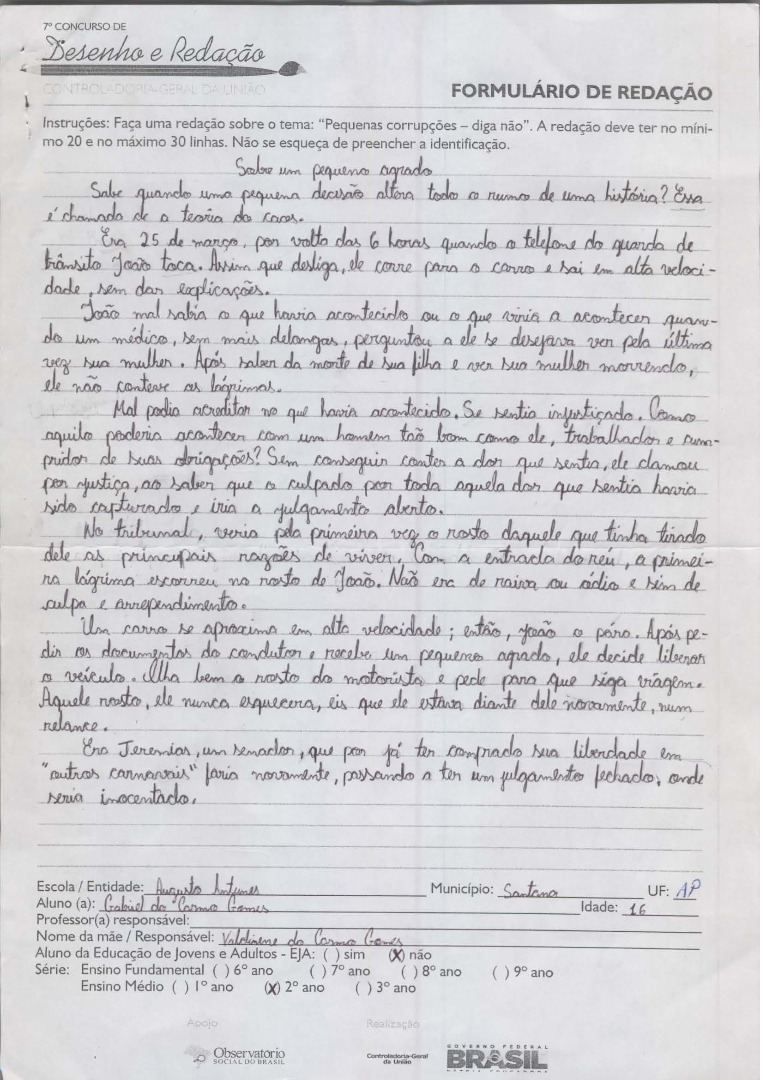 7º CONCURSO DE
Desenho e Redação
CONTROLADORIA-GERAL DA UNIÃO
FORMULÁRIO DE REDAÇÃO
Instruções: Faça uma redação sobre o tema: "Pequenas corrupções – diga não". A redação deve ter no míni-
mo 20 e no máximo 30 linhas. Não se esqueça de preencher a identificação.
Sobre um pequeno agrado
Sabe quando uma pequena decisão altera todo o rumo de uma história? Essa
é chamada de a teoria do caos.
Era 25 de março, por volta das 6 horas quando o telefone do guarda de
trânsito João toca. Assim que desliga, ele corre para o carro e sai em alta veloci-
dade, sem dar explicações.
João mal sabia o que havia acontecido ou o que viria a acontecer quan-
do um médico, sem mais delongas, perguntou a ele se desejava ver pela última
vez sua mulher. Após saber da morte de sua filha e ver sua mulher morrendo,
ele não conteve as lágrimas.
Mal podia acreditar no que havia acontecido. Se sentia injustiçado. Como
aquilo poderia acontecer com um homem taõ bom como ele, trabalhador e cum-
pridor de suas obrigações? Sem conseguir conter a dor que sentia, ele clamou
por justiça, ao saber que o culpado por toda aquela dor que sentia havia
sido capturado e iria a julgamento aberto.
No tribunal, veria pela primeira vez o rosto daquele que tinha tirado
dele as principais razões de viver. Com a entrada do réu, a primei-
ra lágrima escorreu no rosto de João. Não era de raiva ou ódio e sim de
culpa e arrependimento.
Um carro se aproxima em alta velocidade; então, João o pára. Após pe-
dir os documentos do condutor e recebe um pequeno agrado, ele decide liberar
o veículo. Olha bem o rosto do motorista e pede para que siga viagem.
Aquele rosto, ele nunca esquecera, eis que ele estava diante dele novamente, num
relance.
Era Jeremias, um senador, que por já ter comprado sua liberdade em
"outros carnavais" faria novamente, passando a ter um julgamento fechado, onde
seria inocentado.
Escola / Entidade: Augusto Antunes Município: Santana UF: AP
Aluno (a): Gabriel do Carmo Gomes Idade: 16
Professor(a) responsável:
Nome da mãe / Responsável: Valdirene do Carmo Gomes
Aluno da Educação de Jovens e Adultos - EJA: ( ) sim (X) não
Série: Ensino Fundamental ( ) 6º ano ( ) 7º ano ( ) 8º ano ( ) 9º ano
Ensino Médio ( ) 1º ano (X) 2º ano ( ) 3º ano
Apoio Realização
Observatório
SOCIAL DO BRASIL
Controladoria-Geral
da União
GOVERNO FEDERAL
BRASIL